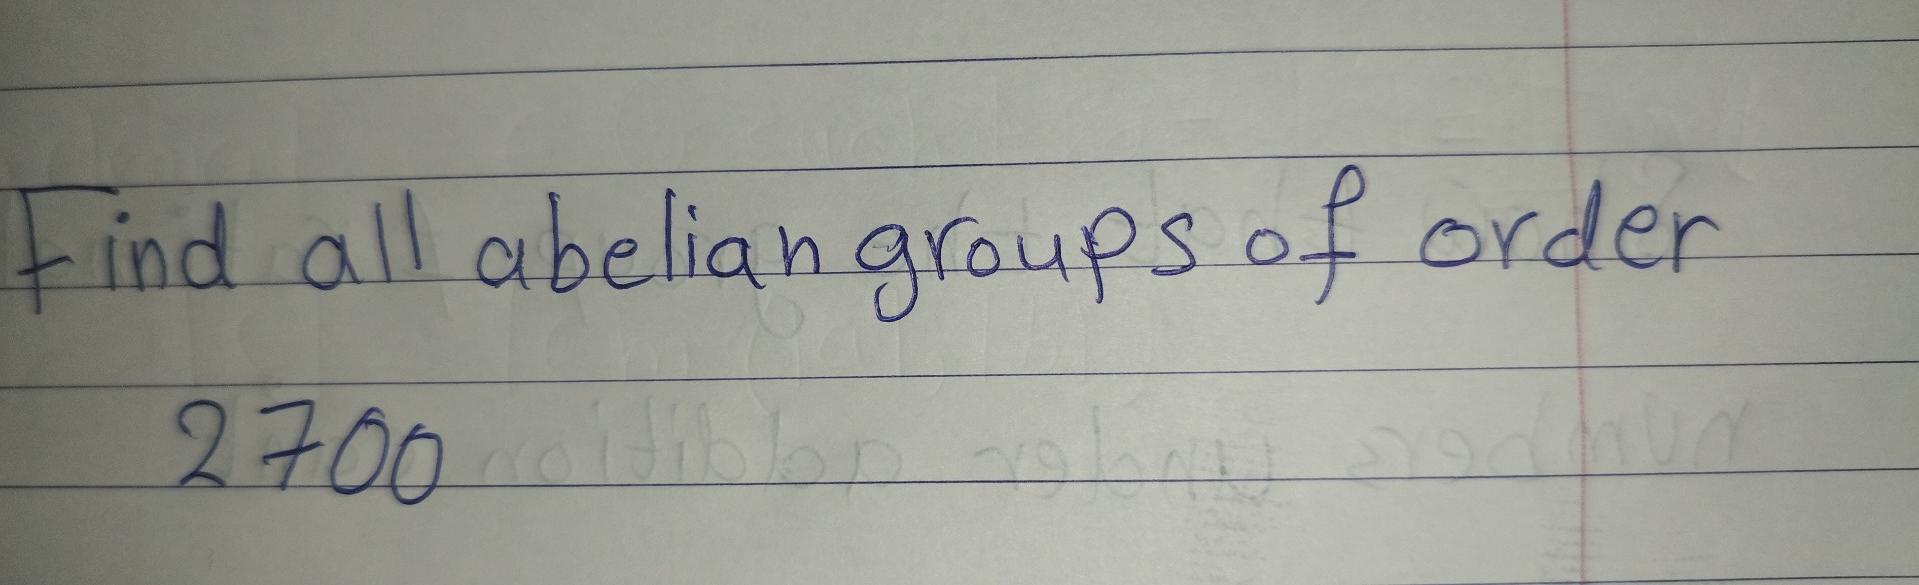 Find all abelian groups of order
2700